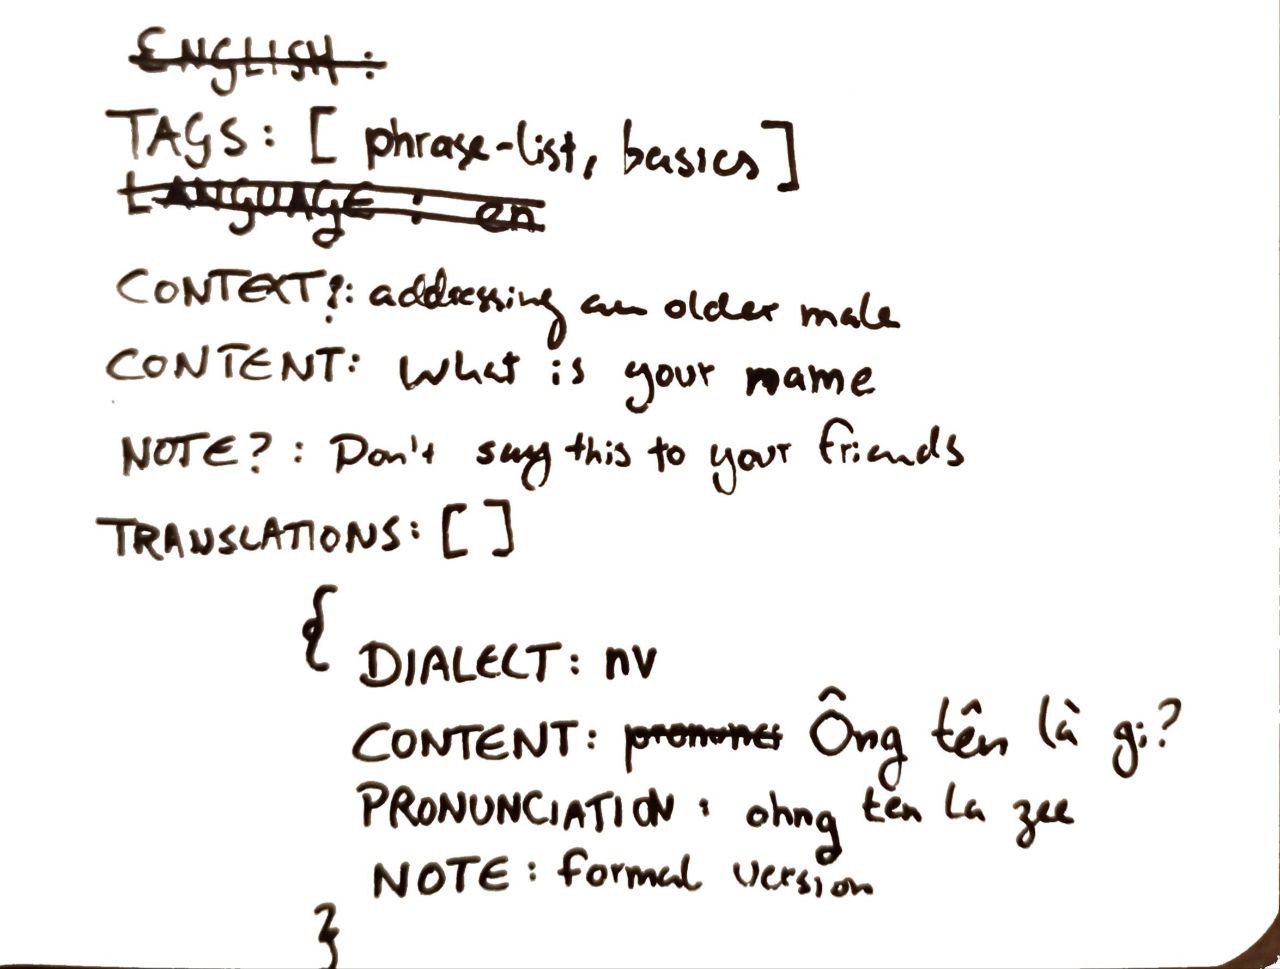 ENGLISH:
TAGS: [ phrase-list, basics ]
LANGUAGE: en
CONTEXT?: addressing an older male
CONTENT: What is your name
NOTE? : Don't say this to your friends
TRANSLATIONS: [ ]
{
DIALECT: nv
CONTENT: Ông tên là gi?
PRONUNCIATION: ohng ten la zee
NOTE: formal version
}